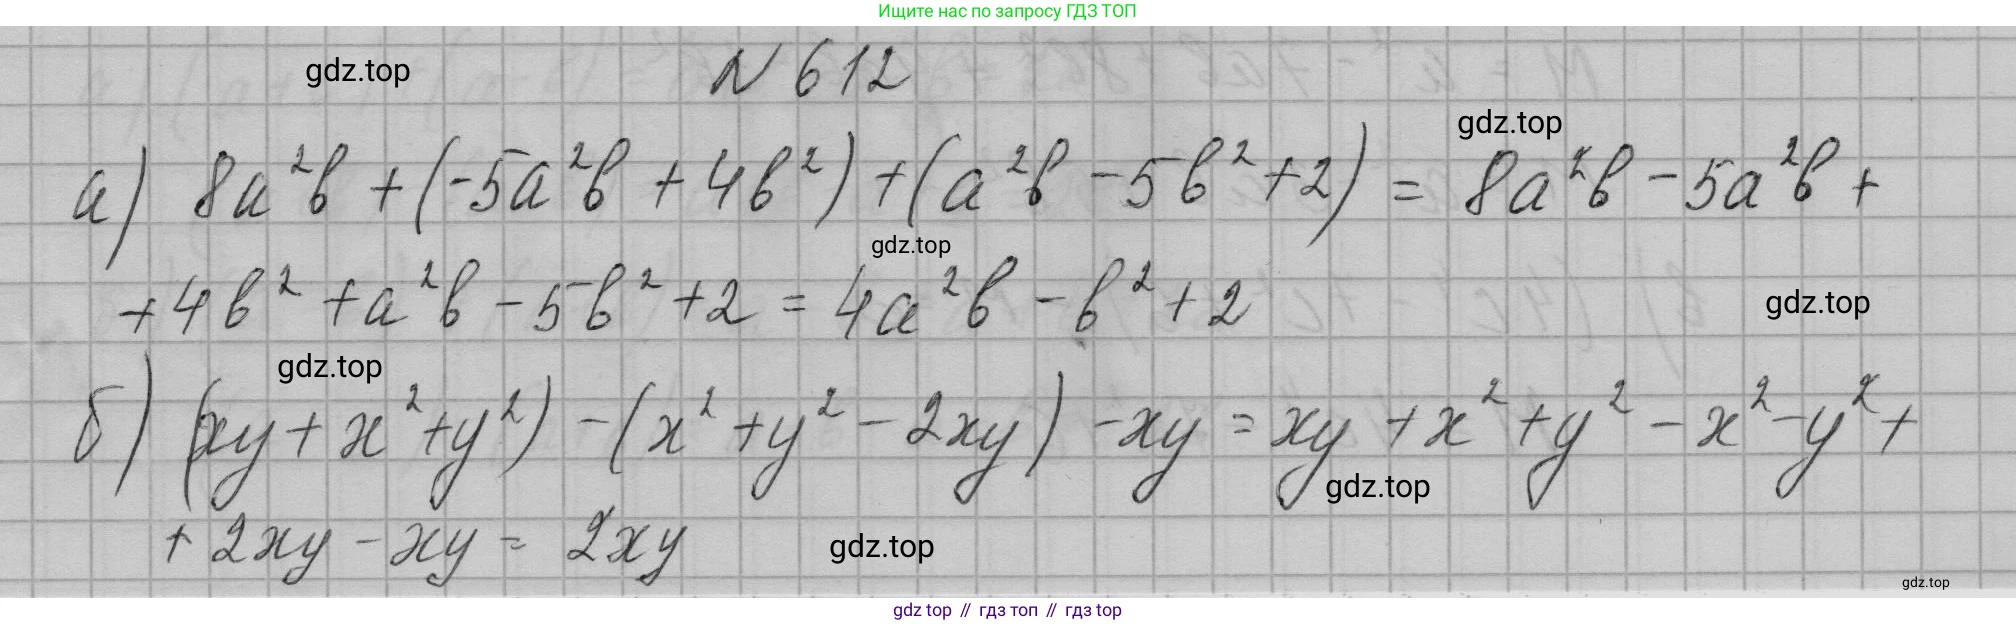 Ищите нас по запросу ГДЗ ТОП
gdz.top
N 612
gdz.top
а) 8a²b + (-5a²b + 4b²) + (a²b - 5b² + 2) = 8a²b - 5a²b +
gdz.top
+ 4b² + a²b - 5b² + 2 = 4a²b - b² + 2
gdz.top
gdz.top
б) (xy + x² + y²) - (x² + y² - 2xy) - xy = xy + x² + y² - x² - y² +
gdz.top
+ 2xy - xy = 2xy
gdz.top
gdz.top
gdz top // гдз топ // гдз top